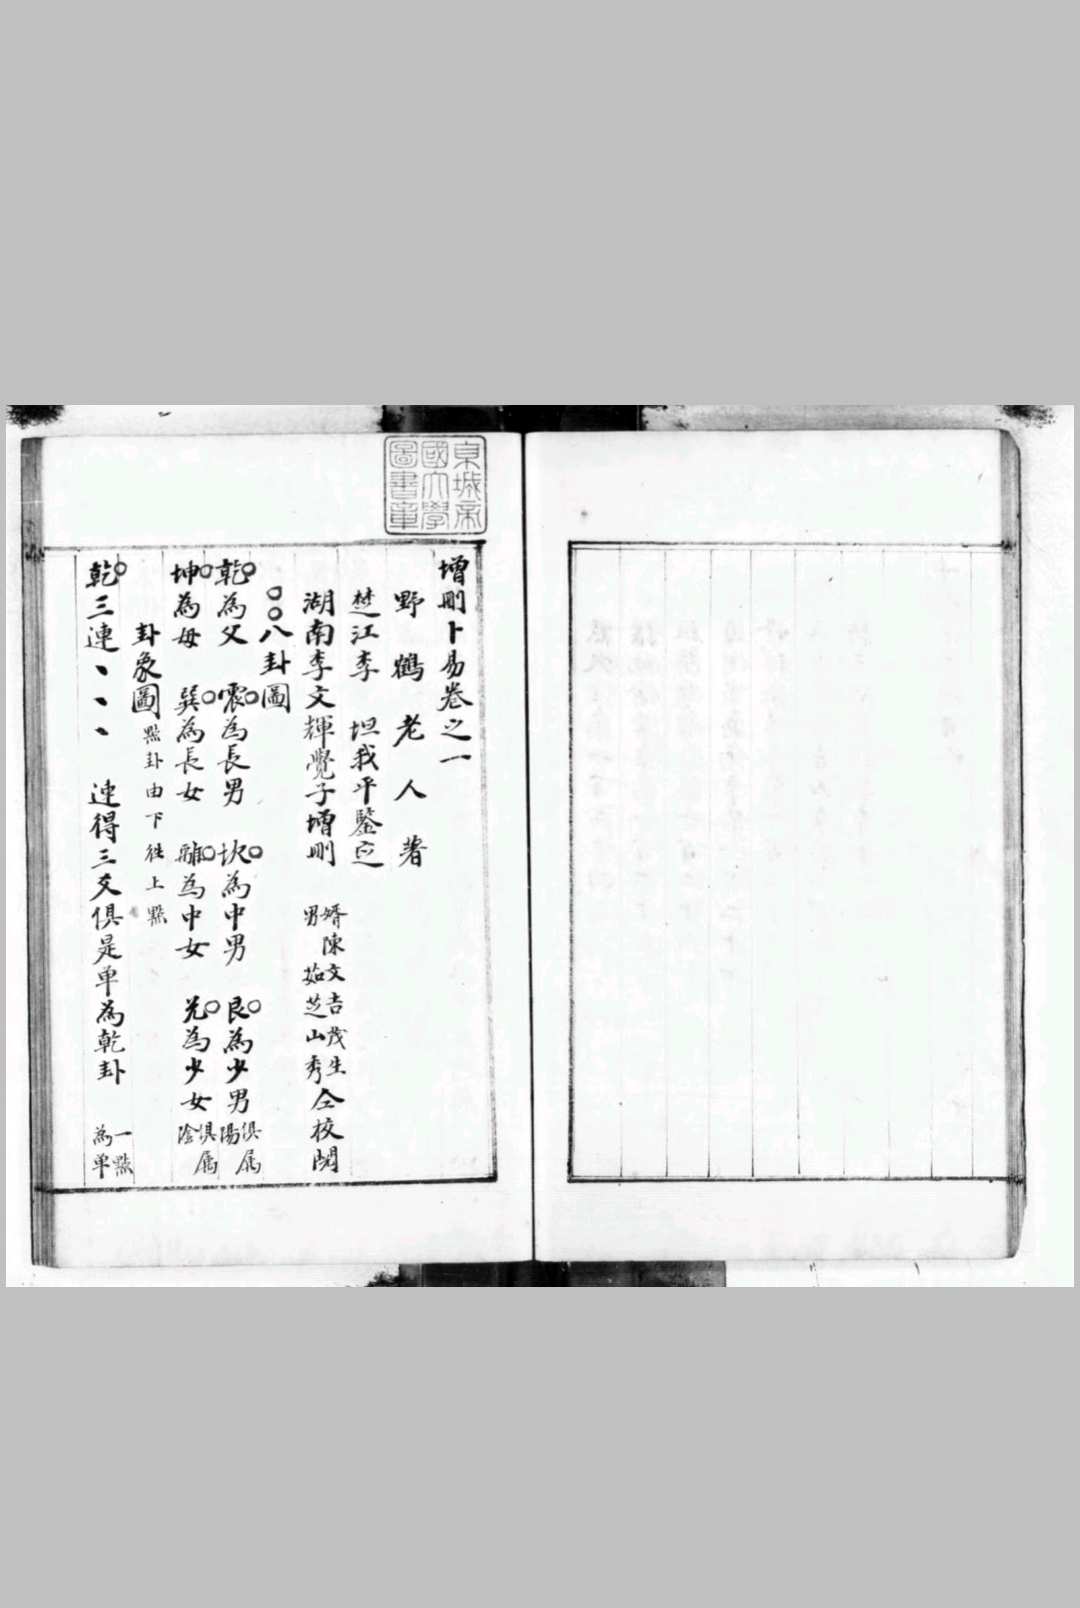 京城帝
國大學
圖書章
增刪卜易卷之一
野鶴老人著
楚江李 坦我平鑒定
湖南李文輝覺子增刪 婿陳文吉茂生 男 茹芝山秀 仝校閱
○○八卦圖
乾○為父 震○為長男 坎○為中男 艮○為少男 俱属陽
坤○為母 巽○為長女 離○為中女 兌○為少女 俱属陰
卦象圖 點卦由下往上點
乾○三連丶丶丶 連得三爻俱是单為乾卦 一點為单